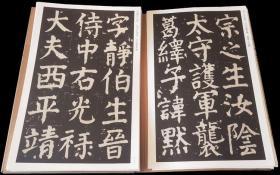 宗之生汝陰
太守護軍襲
葛繹子諱默
字靜伯生晉
侍中右光禄
大夫西平靖